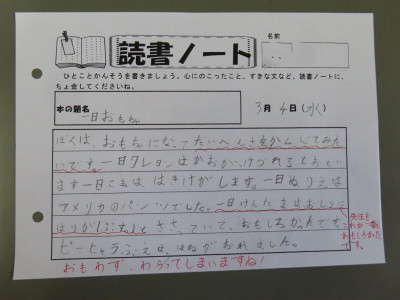 読書ノート
名前
ひとことかんそうを書きましょう。心にのこったこと、すきな文など、読書ノートに、
ちょ金してくださいね。
本の題名
一日おもちゃ
3月4日(水)
ぼくは、おもちゃになってたいへんさをかんじてみた
いです。一日クレヨンはかおが、けづれると
ます一日こまは、はきけがします。一日ぬりえは
アメリカのパンツでした。一日けんだまはおしりに
はりが「ぶすっと ささっていて、おもしろかったです
ピーヒャラぶえは、はねがおれました。
先生も
これが一番
おもしろかった
です。
おもわず、わらってしまいますね!